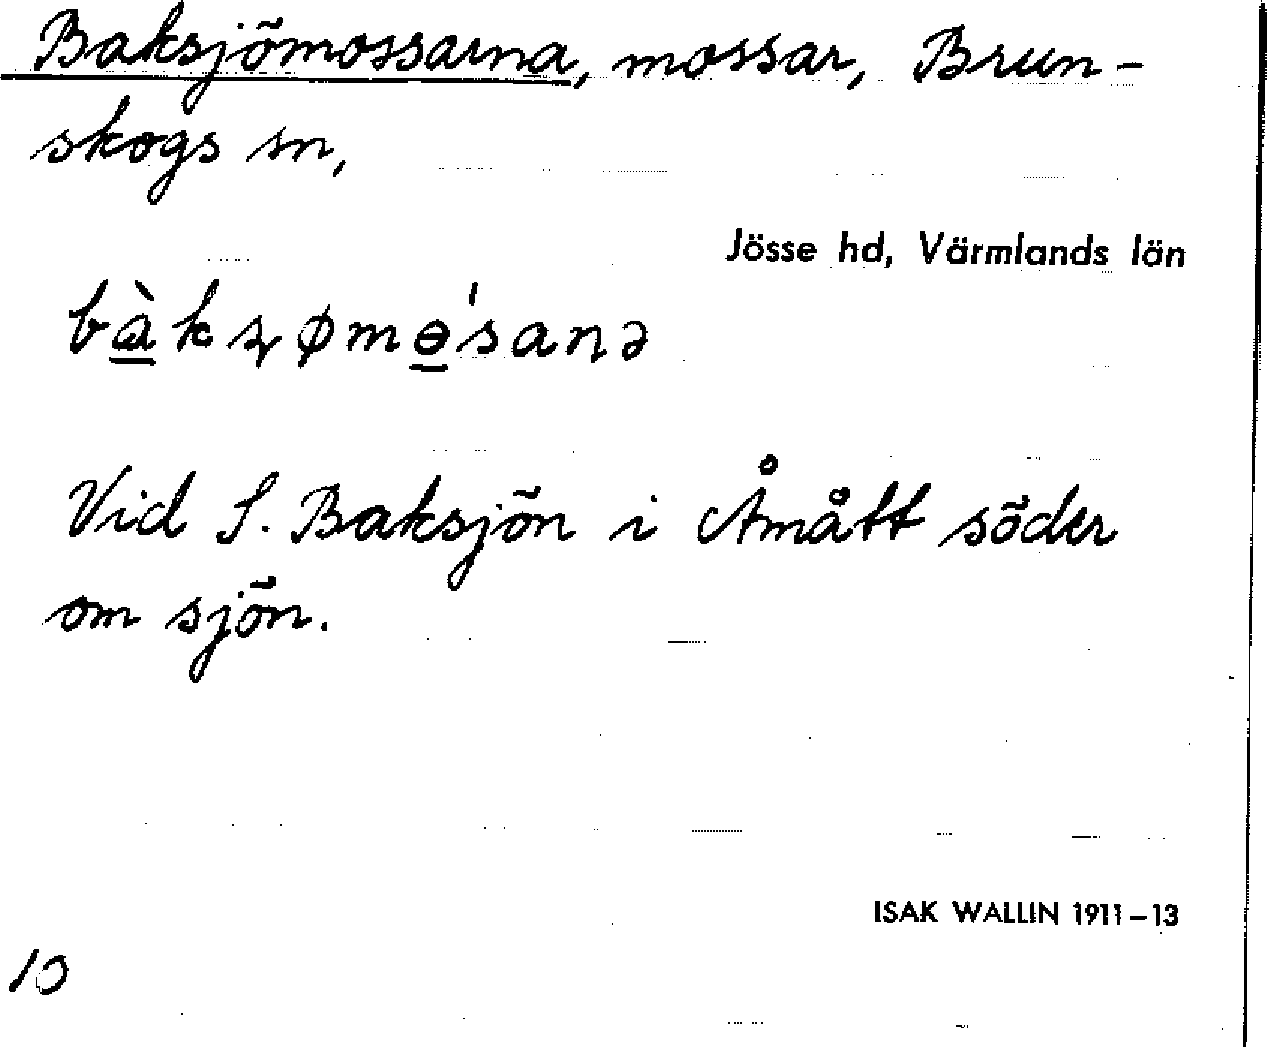 Baksjömossarna, mossar, Brun-
skogs sn,
Jösse hd, Värmlands län
Vid S. Baksjön i Åmått söder
om sjön.
ISAK WALLIN 1911–13
10